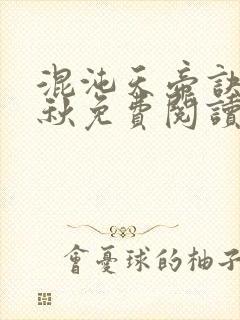 混沌天帝訣
秋免費閱讀
會憂球的柚子